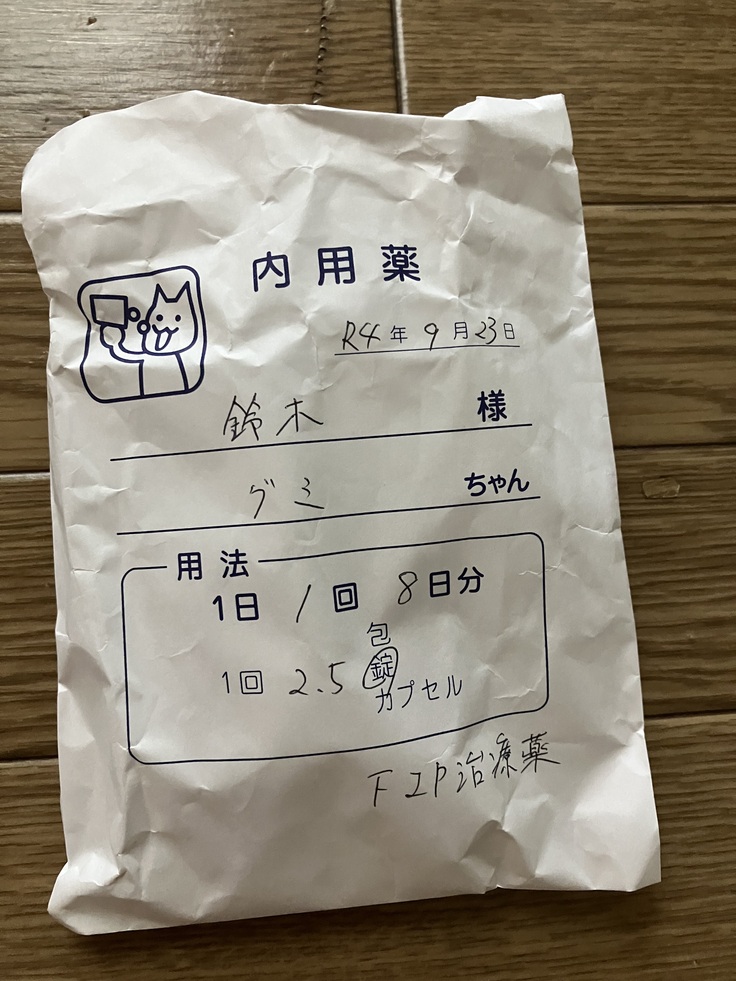 内用薬
R4年9月23日
鈴木 様
グミ ちゃん
用法
1日 1回 8日分
包
1回 2.5 錠
カプセル
FIP治療薬